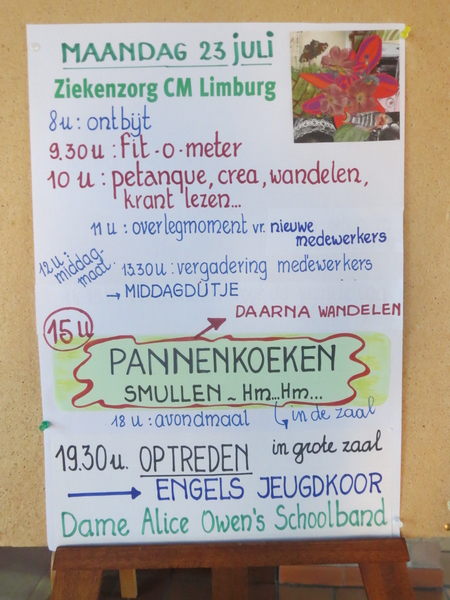 MAANDAG 23 juli
Ziekenzorg CM Limburg
8u : ontbijt
9.30u : fit-o-meter
10 u : petanque, crea, wandelen,
krant lezen...
11 u : overlegmoment vr. nieuwe
medewerkers
12 u :
middag-
maal.
13.30u : vergadering medewerkers
→ MIDDAGDUTJE
DAARNA WANDELEN
15 u
PANNENKOEKEN
SMULLEN ~ Hm...Hm...
18 u : avondmaal
in de zaal
19.30u. OPTREDEN in grote zaal
→ ENGELS JEUGDKOOR
Dame Alice Owen's Schoolband